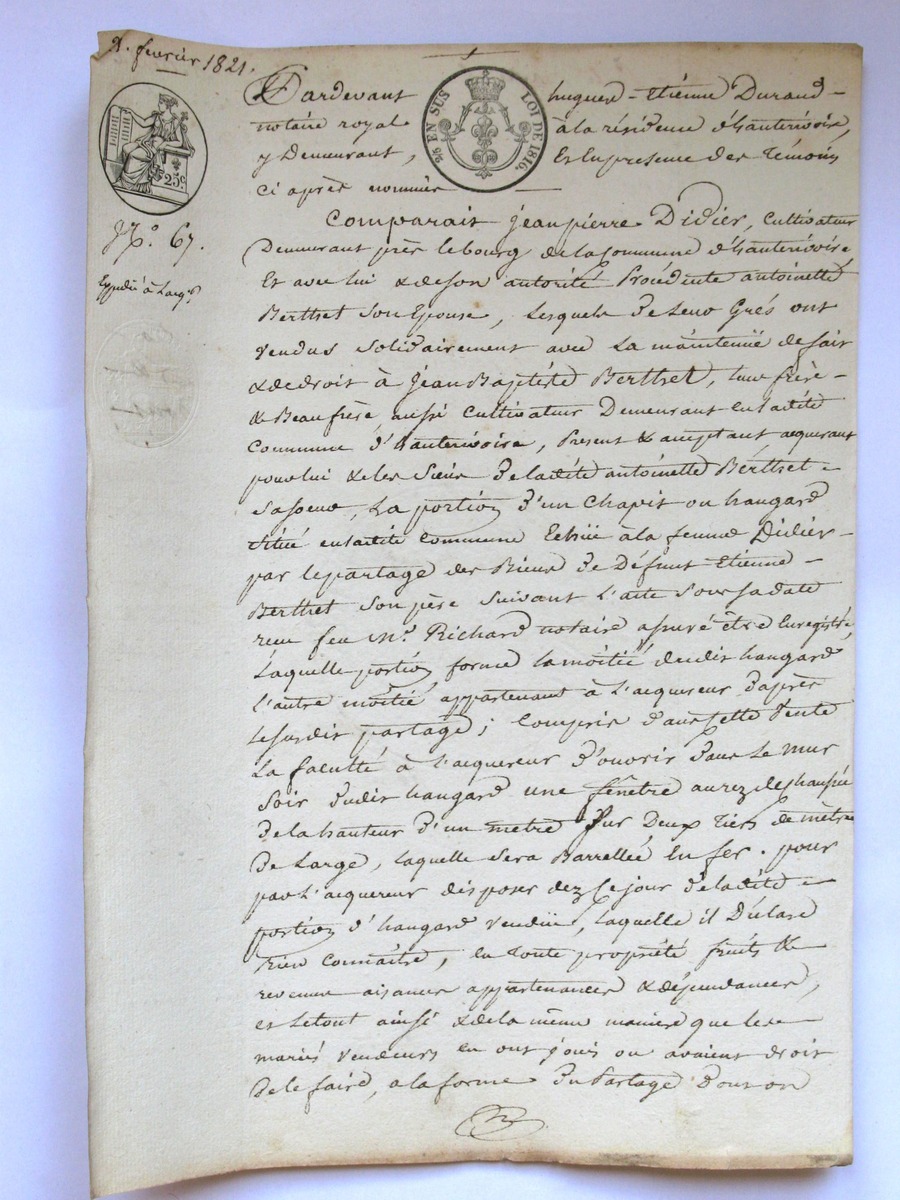 2. février 1821.
25c
¼ EN SUS LOI DE 1816.
No. 67.
Expédié à l'acqr
Pardevant hugues - Etiénne Durand -
notaire royal à la résidence d'hauterivoire,
y Demeurant, Et En presence des Témoins
Ci après nommés
Comparait Jean pierre Didier, Cultivateur
Demeurant près le bourg de la Commune d'hauterivoire
Et avec lui & de son autorité Procédente antoinette
Berthet Son Epouse, Lesquels De Leur Grés ont
vendus Solidairement avec La maintenüe de fait
& de droit à Jean Baptiste Berthet, leur frère -
& Beaufrère aussi Cultivateur Demeurant en ladite
Commune d'hauterivoire, Present & acceptant acquerant
pour lui & les Siens De ladite antoinette Berthet -
Sa soeur, La portion D'un Chapit ou hangard
Situé en ladite Commune Echüe à la femme Didier -
par le partage des Biens De Défunt Etienne -
Berthet Son père Suivant L'acte Sous Sa date
reçu feu me. Richard notaire assuré être Enregistré,
Laquelle portion forme la moitié dudit hangard
L'autre moitié appartenant à L'acquereur D'après
Le susdit partage; Compris Dans Cette Vente
La faculté à l'acquereur D'ouvrir Dans Le Mur
Soir Dudit hangard une fênetre au rez de chaussée
De la hauteur D'un mètre Sur Deux Tiers de mètre
De Large, laquelle Sera Barrellée En fer. pour
par L'acquereur disposer dez Ce jour De ladite -
portion d'hangard vendüe, laquelle il Déclare
Bien Connaître, En Toute propriété fruits &
revenus aisances appartenances & dépendances,
et Le tout ainsi & de la même maniere que les -
mariés vendeurs en ont jouis ou avaient droit
De le faire, a la forme Du Partage Dont on